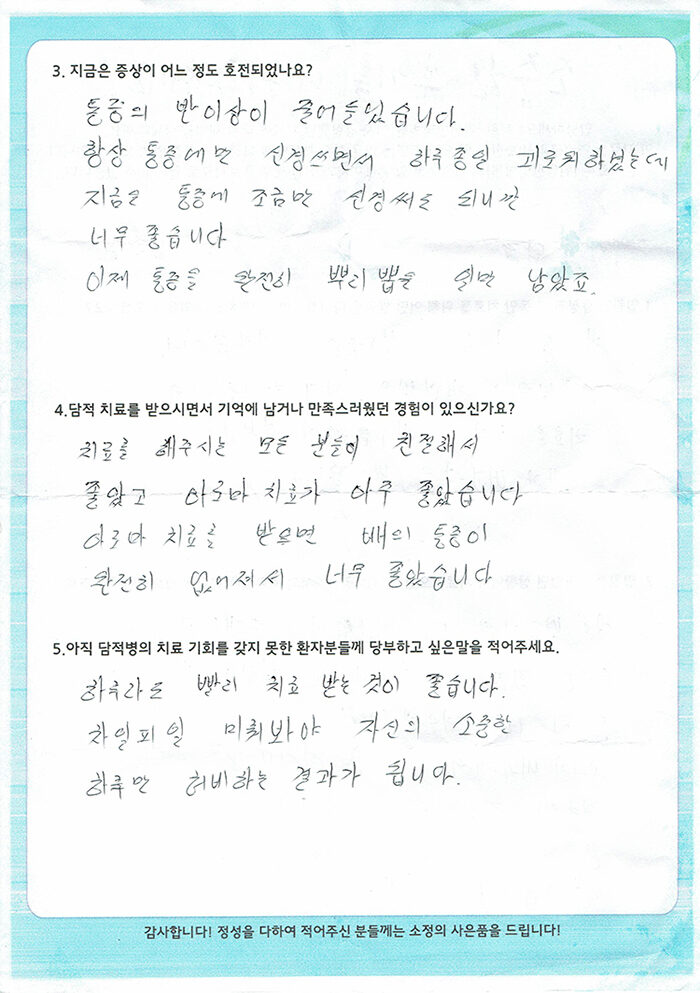 3. 지금은 증상이 어느 정도 호전되었나요?
통증의 반이상이 줄어들었습니다.
항상 통증에만 신경쓰면서 하루종일 괴로워하였는데
지금은 통증에 조금만 신경써도 되니깐
너무 좋습니다
이제 통증을 완전히 뿌리뽑을 일만 남았죠.
4.담적 치료를 받으시면서 기억에 남거나 만족스러웠던 경험이 있으신가요?
치료를 해주시는 모든 분들이 친절해서
좋았고 아로마 치료가 아주 좋았습니다
아로마 치료를 받으면 배의 통증이
완전히 없어져서 너무 좋았습니다
5.아직 담적병의 치료 기회를 갖지 못한 환자분들께 당부하고 싶은말을 적어주세요.
하루라도 빨리 치료 받는 것이 좋습니다.
차일피일 미뤄봐야 자신의 소중한
하루만 허비하는 결과가 됩니다.
감사합니다! 정성을 다하여 적어주신 분들께는 소정의 사은품을 드립니다!